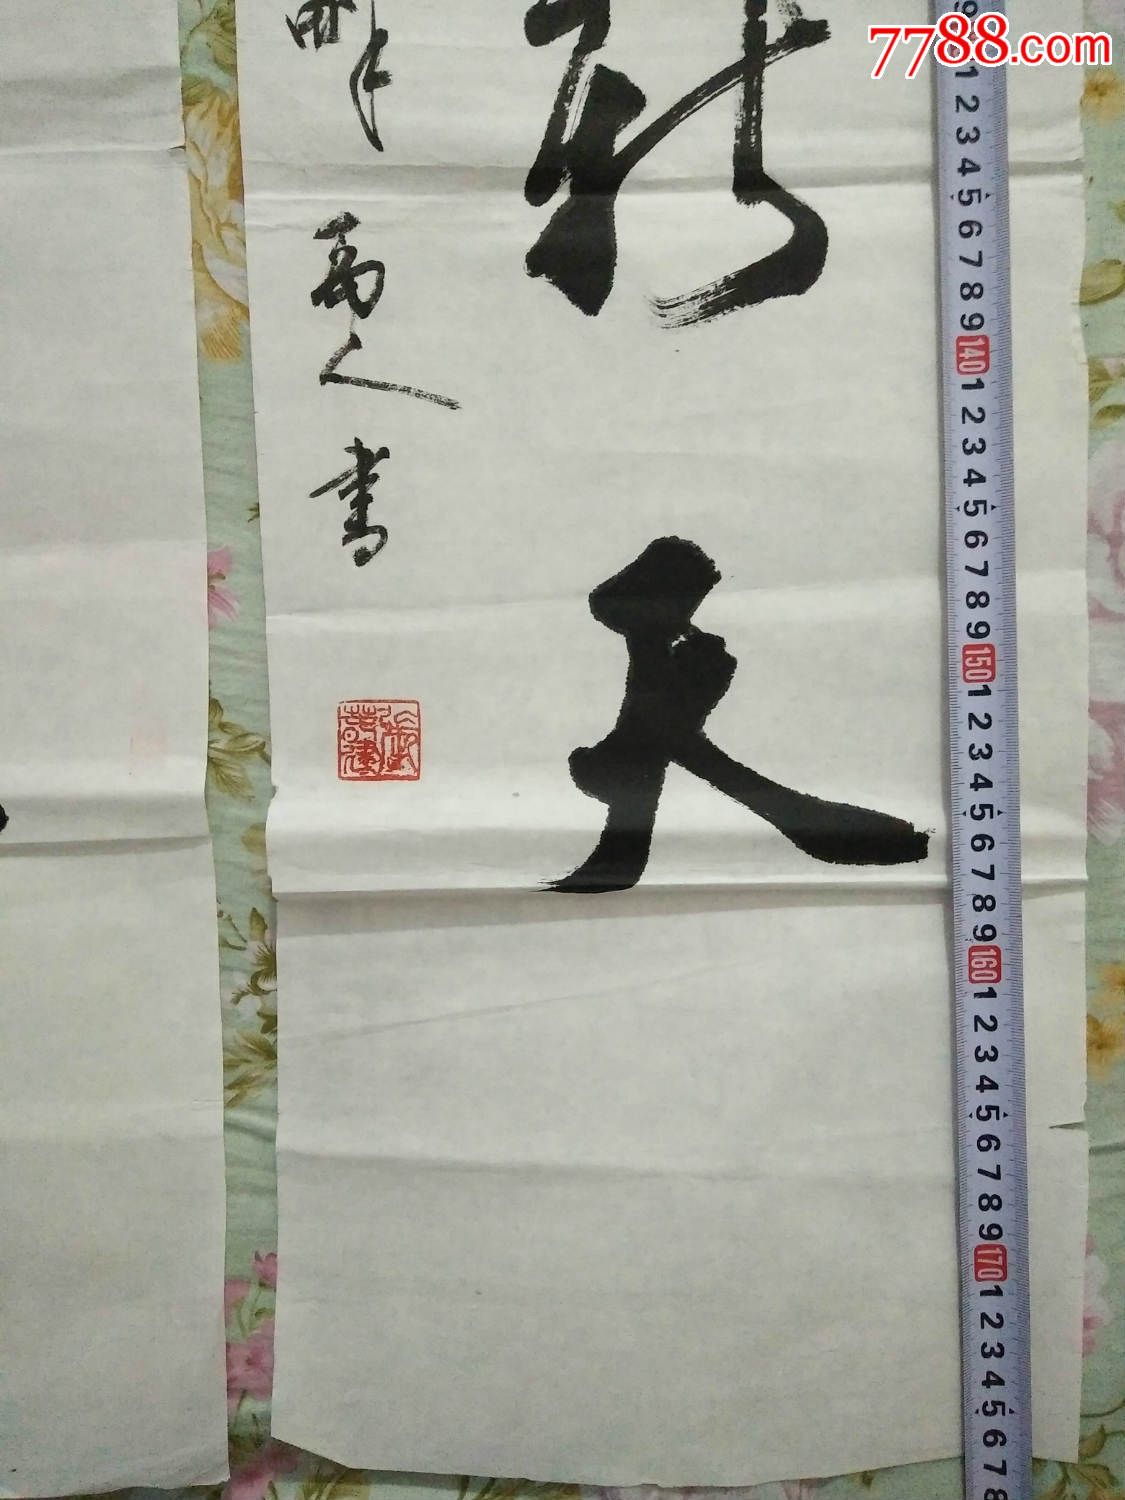 7788.com
新天
畔
人書
1 2 3 4 5 6 7 8 9 140 1 2 3 4 5 6 7 8 9 150 1 2 3 4 5 6 7 8 9 160 1 2 3 4 5 6 7 8 9 170 1 2 3 4 5 6 7 8